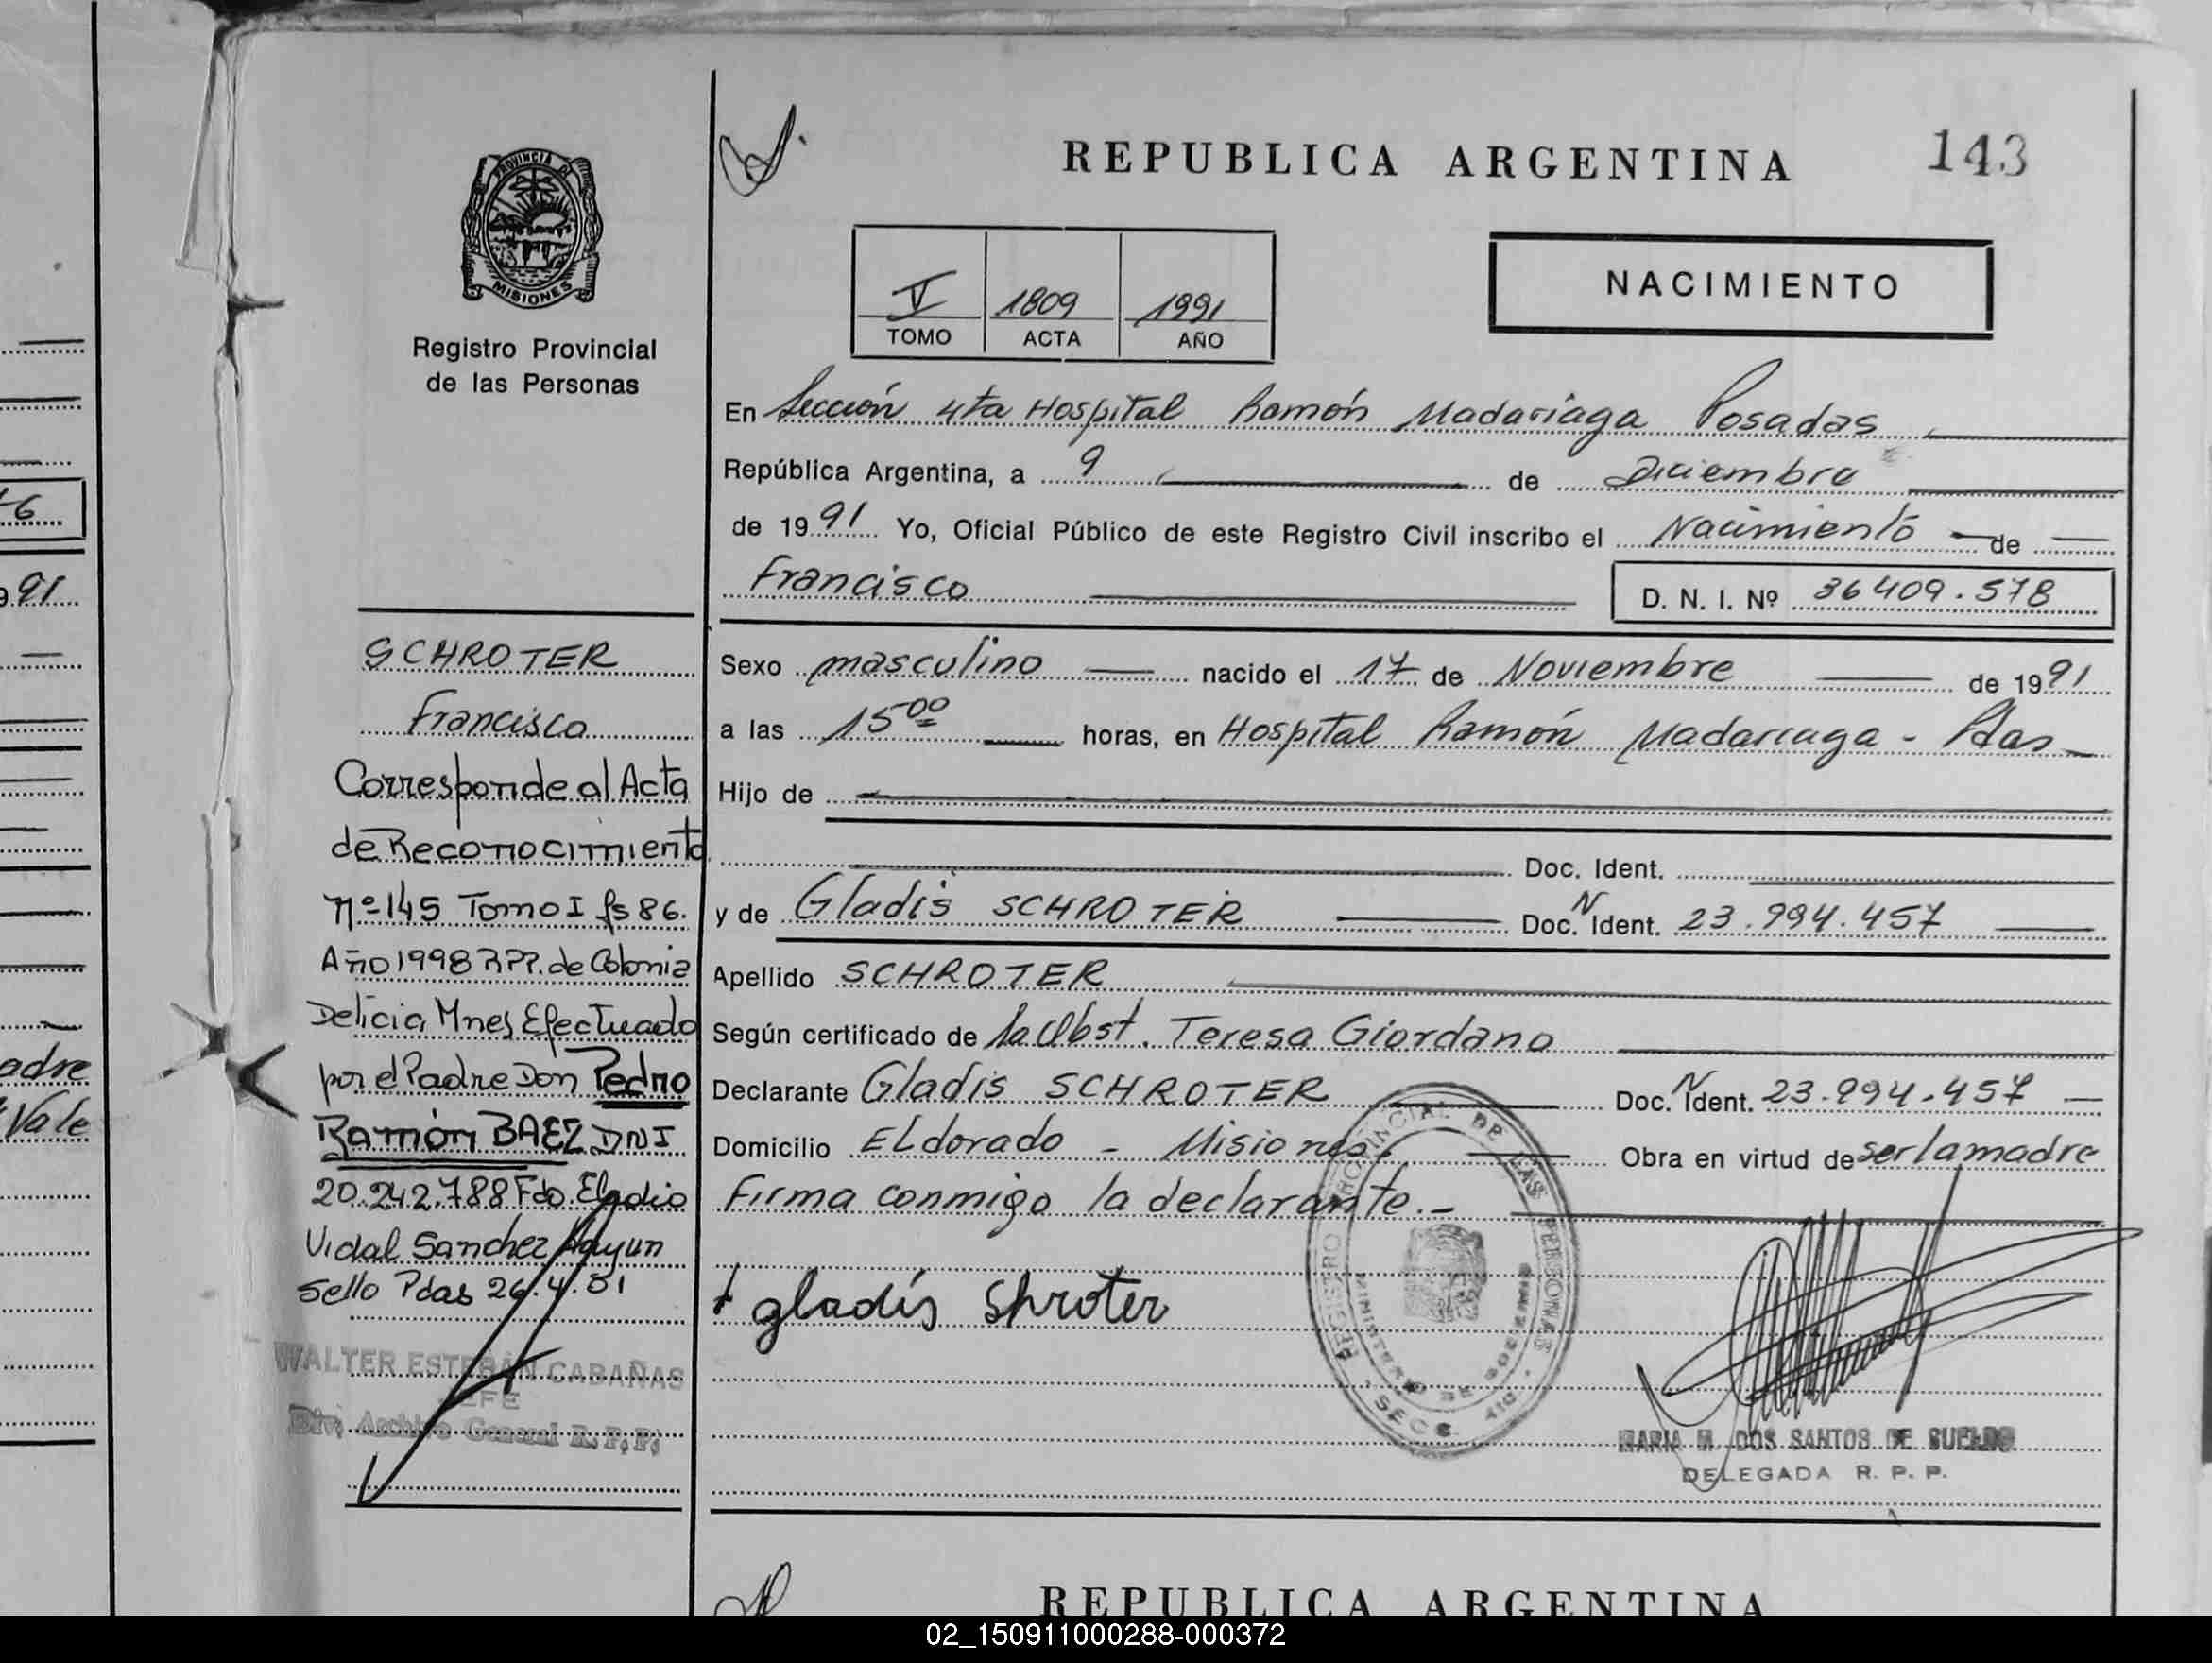 REPUBLICA ARGENTINA
143
PROVINCIA DE
MISIONES
Registro Provincial
de las Personas
V 1809 1991
TOMO ACTA AÑO
NACIMIENTO
En Sección 4ta Hospital Ramón Madariaga Posadas
República Argentina, a 9 de Diciembre
de 1991 Yo, Oficial Público de este Registro Civil inscribo el Nacimiento de
Francisco D. N. I. Nº 36409.578
Sexo masculino nacido el 17 de Noviembre de 1991
a las 15 00 horas, en Hospital Ramón Madariaga - Pdas
Hijo de
Doc. Ident.
y de Gladis SCHROTER Doc. N Ident. 23.994.457
Apellido SCHROTER
Según certificado de la Obst. Teresa Giordano
Declarante Gladis SCHROTER Doc. N Ident. 23.994.457
Domicilio Eldorado - Misiones. Obra en virtud de ser la madre
Firma conmigo la declarante.-
gladís Shroter
REGISTRO PROVINCIAL DE LAS PERSONAS
MINISTERIO DE GOBIERNO
SECC. 4ta
MARIA M. DOS SANTOS DE SUELDO
DELEGADA R. P. P.
SCHROTER
Francisco
Corresponde al Acta
de Reconocimiento
Nº 145 Tomo I fs 86.
Año 1998 RPP. de Colonia
Delicia Mnes Efectuado
por el Padre Don Pedro
Ramón BAEZ DNI
20.242.788 Fdo. Eladio
Vidal Sanchez
Sello Pdas 26.4.01
WALTER ESTEBAN CABAÑAS
JEFE
Div. Archivo General R. P. P.
REPUBLICA ARGENTINA
46
991
adre
Vale
02_150911000288-000372